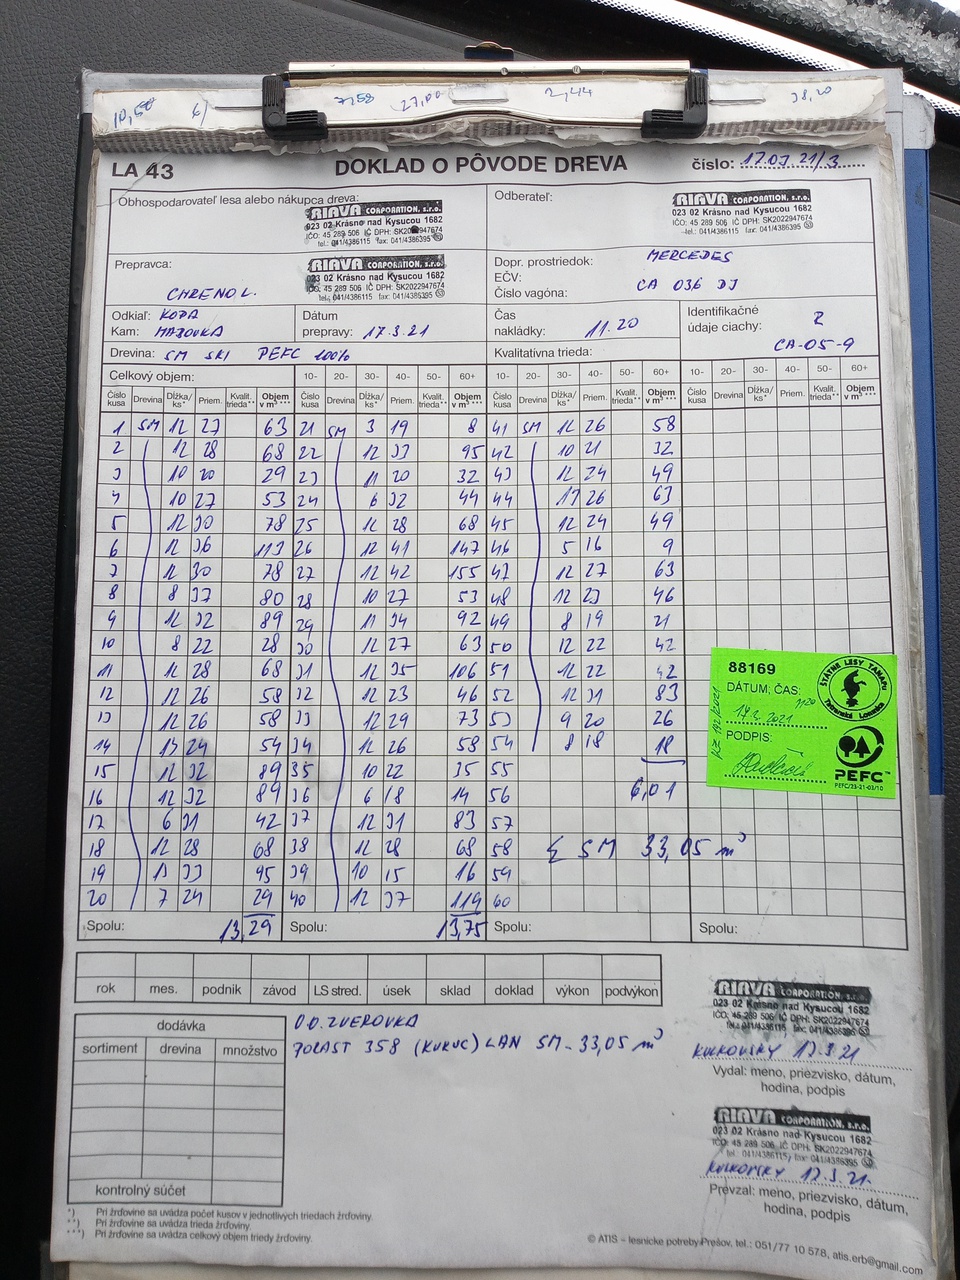 10,58 6/ 7,58 27,00 2,44 38,20
LA 43 DOKLAD O PÔVODE DREVA číslo: 17.03.21/3
Obhospodarovateľ lesa alebo nákupca dreva:
RIAVA CORPORATION, s.r.o.
023 02 Krásno nad Kysucou 1682
IČO: 45 289 506 IČ DPH: SK2022947674
tel.: 041/4386115 fax: 041/4386395
Odberateľ:
RIAVA CORPORATION, s.r.o.
023 02 Krásno nad Kysucou 1682
IČO: 45 289 506 IČ DPH: SK2022947674
tel.: 041/4386115 fax: 041/4386395
Prepravca:
CHRENO L.
RIAVA CORPORATION, s.r.o.
023 02 Krásno nad Kysucou 1682
IČO: 45 289 506 IČ DPH: SK2022947674
tel.: 041/4386115 fax: 041/4386395
Dopr. prostriedok: MERCEDES
EČV: CA 036 DJ
Číslo vagóna:
Odkiaľ: KOPA
Kam: MAZOVKA
Dátum
prepravy: 17.3.21
Čas
nakládky: 11.20
Identifikačné
údaje ciachy: Z
CA-05-9
Drevina: SM SRI PEFC 100%
Kvalitatívna trieda:
Celkový objem: 10- 20- 30- 40- 50- 60+ 10- 20- 30- 40- 50- 60+ 10- 20- 30- 40- 50- 60+
Číslo kusa Drevina Dĺžka/ks* Priem. Kvalit. trieda** Objem v m³*** Číslo kusa Drevina Dĺžka/ks* Priem. Kvalit. trieda** Objem v m³*** Číslo kusa Drevina Dĺžka/ks* Priem. Kvalit. trieda** Objem v m³*** Číslo kusa Drevina Dĺžka/ks* Priem. Kvalit. trieda** Objem v m³***
1 SM 12 27 63 21 SM 3 19 8 41 SM 12 26 58
2 12 28 68 22 12 33 95 42 10 21 32
3 10 20 29 23 11 20 32 43 12 24 49
4 10 27 53 24 6 32 44 44 13 26 63
5 12 30 78 25 12 28 68 45 12 24 49
6 12 36 113 26 12 41 147 46 5 16 9
7 12 30 78 27 12 42 155 47 12 27 63
8 8 37 80 28 10 27 53 48 12 23 46
9 12 32 89 29 11 34 92 49 8 19 21
10 8 22 28 30 12 27 63 50 12 22 42
11 12 28 68 31 12 35 106 51 12 22 42
12 12 26 58 32 12 23 46 52 12 31 83
13 12 26 58 33 12 29 73 53 9 20 26
14 13 24 54 34 12 26 58 54 8 18 18
15 12 32 89 35 10 22 35 55
16 12 32 89 36 6 18 14 56 6,01
17 6 31 42 37 12 31 83 57
18 12 28 68 38 12 28 68 58 Σ SM 33,05 m³
19 13 33 95 39 10 15 16 59
20 7 24 29 40 12 37 119 60
Spolu: 13,29 Spolu: 13,75 Spolu: Spolu:
88169
DÁTUM, ČAS: 1120
17.3.2021
PODPIS:
ŠTÁTNE LESY TANAPU
Tatranská Lomnica
PEFC
PEFC/23-21-03/10
rok mes. podnik závod LS stred. úsek sklad doklad výkon podvýkon
dodávka
sortiment drevina množstvo
kontrolný súčet
O.O. ZVEROVKA
PORAST 358 (KUKUC) LAN SM - 33,05 m³
RIAVA CORPORATION, s.r.o.
023 02 Krásno nad Kysucou 1682
IČO: 45 289 506 IČ DPH: SK2022947674
tel.: 041/4386115 fax: 041/4386395
KULKOVSKY 17.3.21
Vydal: meno, priezvisko, dátum,
hodina, podpis
RIAVA CORPORATION, s.r.o.
023 02 Krásno nad Kysucou 1682
IČO: 45 289 506 IČ DPH: SK2022947674
tel.: 041/4386115, fax: 041/4386395
KULKOVSKY 17.3.21.
Prevzal: meno, priezvisko, dátum,
hodina, podpis
*) Pri žrďovine sa uvádza počet kusov v jednotlivých triedach žrďoviny.
**) Pri žrďovine sa uvádza trieda žrďoviny.
***) Pri žrďovine sa uvádza celkový objem triedy žrďoviny.
© ATIS – lesnícke potreby Prešov, tel.: 051/77 10 578, atis.erb@gmail.com